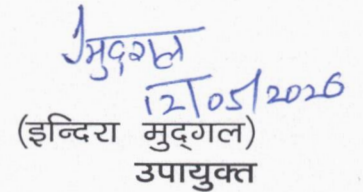 इमुदगल
12/05/2026
(इन्दिरा मुद्गल)
उपायुक्त